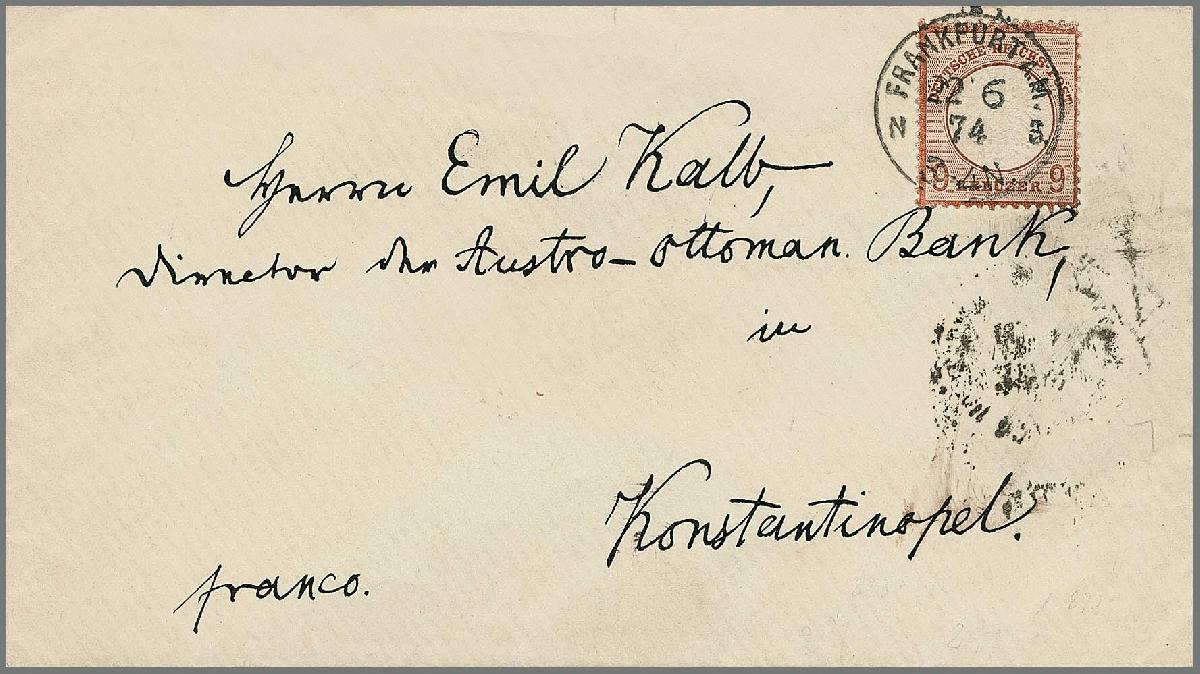 FRANKFURT A. M.
2 6
74
N
DEUTSCHE REICHS-POST
9 KREUZER 9
Herrn Emil Kalb,
Director der Austro-ottoman. Bank,
in
Konstantinopel.
franco.